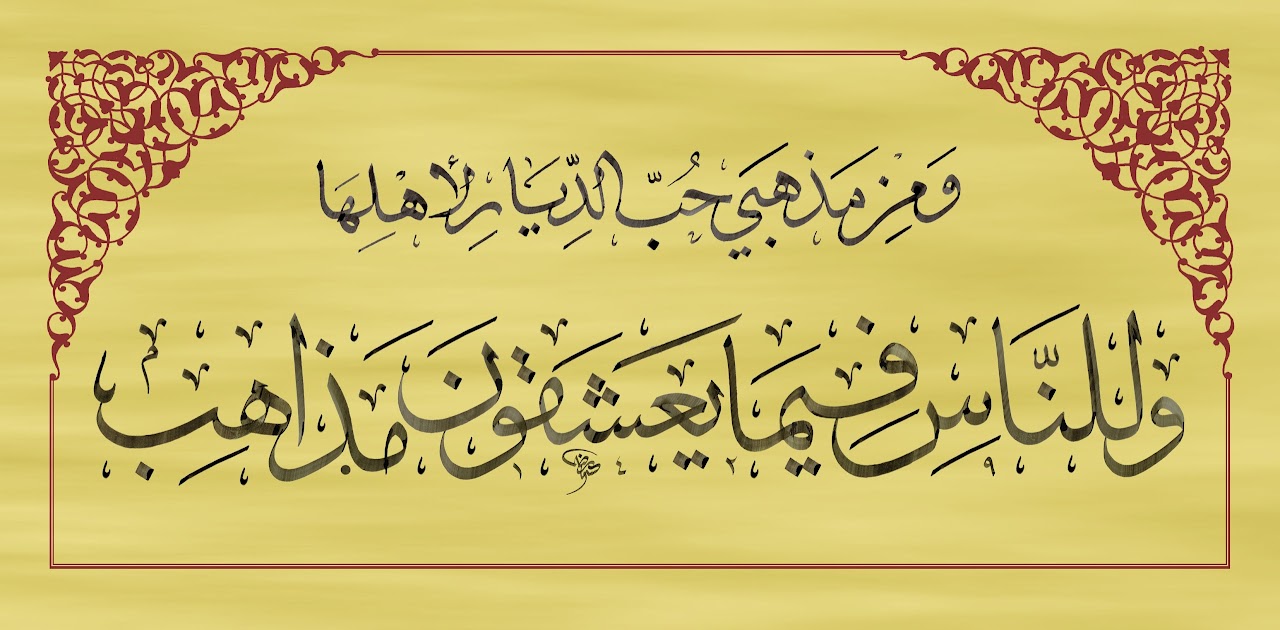 وَمِنْ مَذْهَبِي حُبُّ الدِّيَارِ لِأَهْلِهَا
وللنَّاسِ فِيمَا يَعْشَقُونَ مَذَاهِبُ